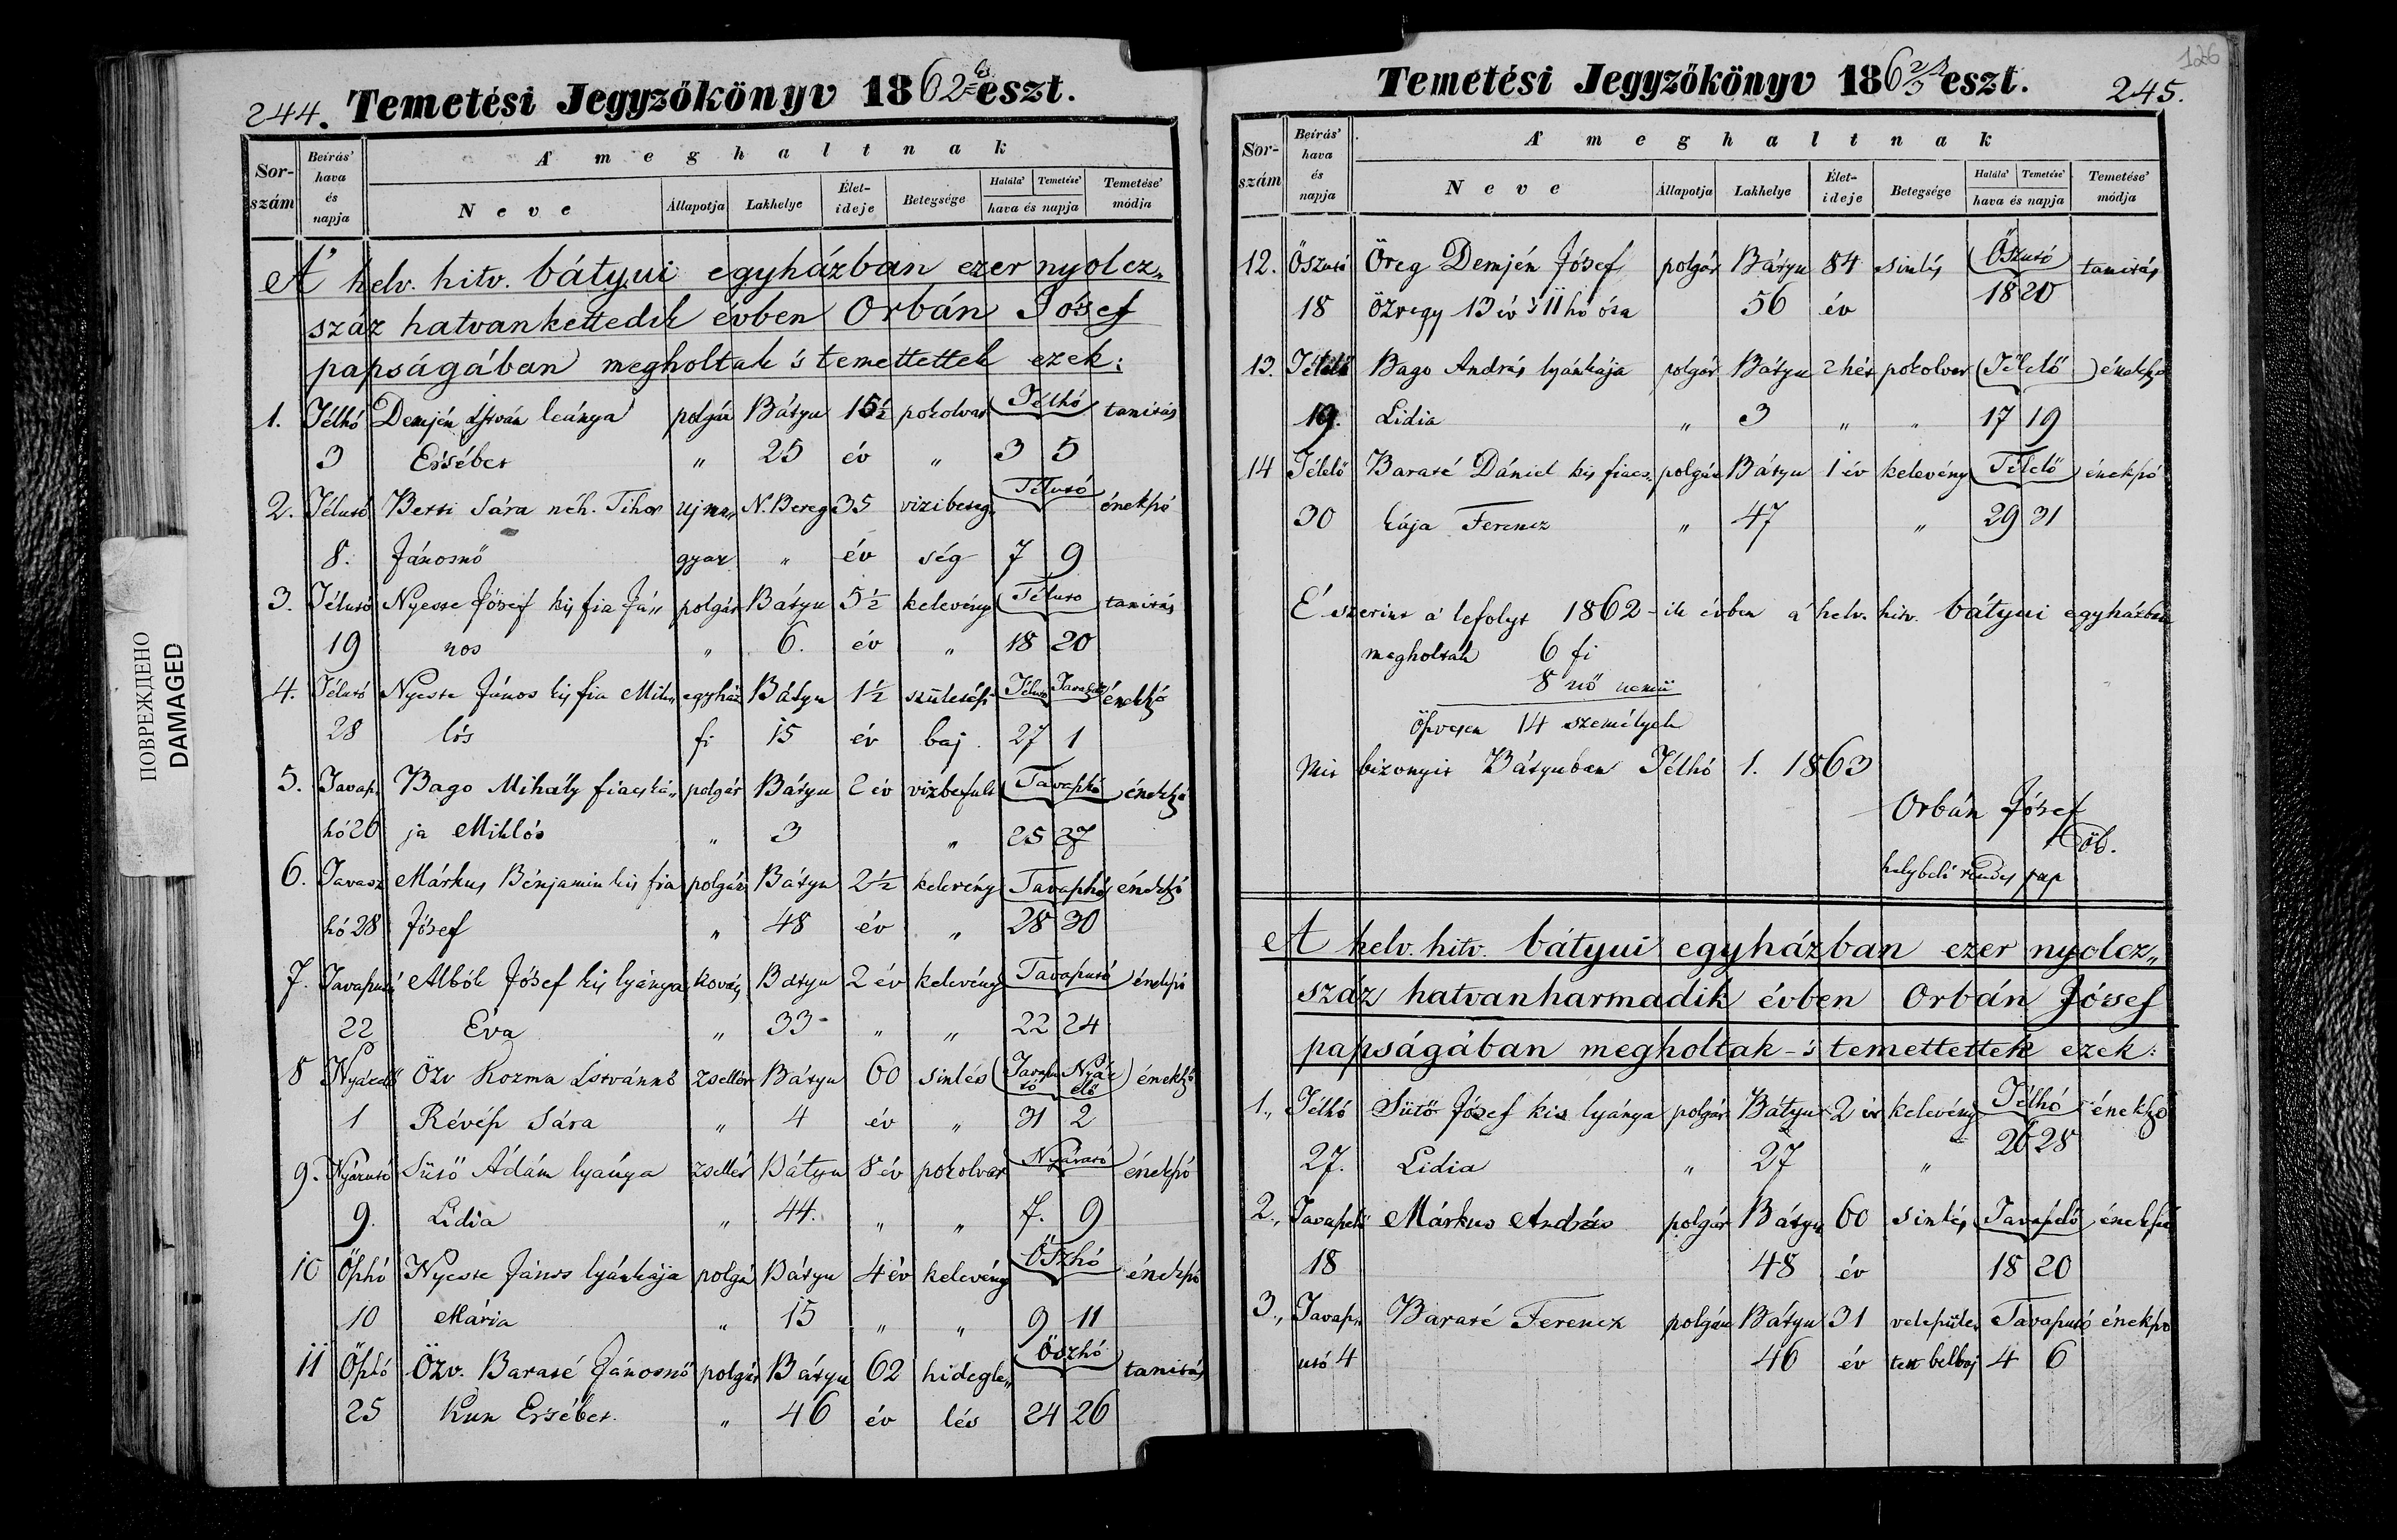 ПОВРЕЖДЕНО
DAMAGED
244. Temetési Jegyzőkönyv 1862 eszt.
Sor-szám Beírás' hava és napja A' meghaltnak
Neve Állapotja Lakhelye Élet-ideje Betegsége Halála' Temetése' hava és napja Temetése' módja
A' helv. hitv. bátyui egyházban ezer nyolcz„
száz hatvankettedik évben Orbán Jósef
papságában megholtak 's temettettek ezek:
1. Télhó Demjén István leánya polgár Bátyu 15½ pokolvar Télhó tanitás
3 Ersébet „ 25 év „ 3 5
2. Télutó Bersi Sára néh. Tihor ujma„ N. Bereg 35 vizibeteg„ Télutó énekszó
8. Jánosnő gyar „ év ség 7 9
3. Télutó Nyeste Jósef kis fia Já„ polgár Bátyu 5½ kelevény Télutó tanitás
19 nos „ 6. év „ 18 20
4. Télutó Nyeste János kis fia Mik„ egyház Bátyu 1½ születési Télutó énekszó
28 lós fi 15 év baj 27 1
5. Tavap. Bago Mihály fiacská„ polgár Bátyu 2 év vizbefult Tavaszhó énekszó
hó 26 ja Miklós „ 3 „ 25 27
6. Tavasz Márkus Bénjamin kis fia polgár Bátyu 2½ kelevény Tavaszhó énekszó
hó 28 Jósef „ 48 év „ 28 30
7. Tavaszutó Albók Jósef kis lyánya kovács Bátyu 2 év kelevény Tavaszutó énekszó
22 Éva „ 33 „ „ 22 24
8 Nyárelő Özv Kozma Istvánné zsellér Bátyu 60 sinlés Tavaszutó Nyárelő énekszó
1 Révész Sára „ 4 év „ 31 2
9. Nyárutó Sütő Ádám lyánya zsellér Bátyu 8 év pokolvar Nyárutó énekszó
9. Lidia „ 44. „ „ 7. 9
10 Öszhó Nyeste János lyánkája polgár Bátyu 4 év kelevény Öszhó énekszó
10 Mária „ 15 „ „ 9 11
11 Öszhó Özv. Baraté Jánosnő polgár Bátyu 62 hidegle„ Öszhó tanitás
25 Kun Ersébet „ 46 év lés 24 26
126
Temetési Jegyzőkönyv 1862/3 eszt. 245.
Sor-szám Beírás' hava és napja A' meghaltnak
Neve Állapotja Lakhelye Élet-ideje Betegsége Halála' Temetése' hava és napja Temetése' módja
12. Öszutó Öreg Demjén Jósef polgár Bátyu 84 sinlés Öszutó tanitás
18 Özvegy 13 év 's 11 hó óta 56 év 18 20
13. Télelő Bago András lyánkája polgár Bátyu 2 hét pokolvar Télelő énekszó
19. Lidia „ 3 „ „ 17 19
14 Télelő Baraté Dániel kis fiacs„ polgár Bátyu 1 év kelevény Télelő énekszó
30 kája Ferencz „ 47 „ 29 31
E' szerint a' lefolyt 1862-ik évben a' helv. hitv. bátyui egyházban
megholtak 6 fi
8 nő nemü
öszvesen 14 személyek
Mit bizonyit Bátyuban Télhó 1. 1863
Orbán Jósef
helybeli rendes pap
A helv. hitv. bátyui egyházban ezer nyolcz„
száz hatvanharmadik évben Orbán Jósef
papságában megholtak - 's temettettek ezek:
1., Télhó Sütő Jósef kis lyánya polgár Bátyu 2 év kelevény Télhó énekszó
27. Lidia „ 27 „ 26 28
2., Tavaszelő Márkus András polgár Bátyu 60 sinlés Tavaszelő énekszó
18 48 év 18 20
3., Tavasz„ Baraté Ferencz polgár Bátyu 31 veleszüle„ Tavaszutó énekszó
utó 4 46 év tett belbaj 4 6